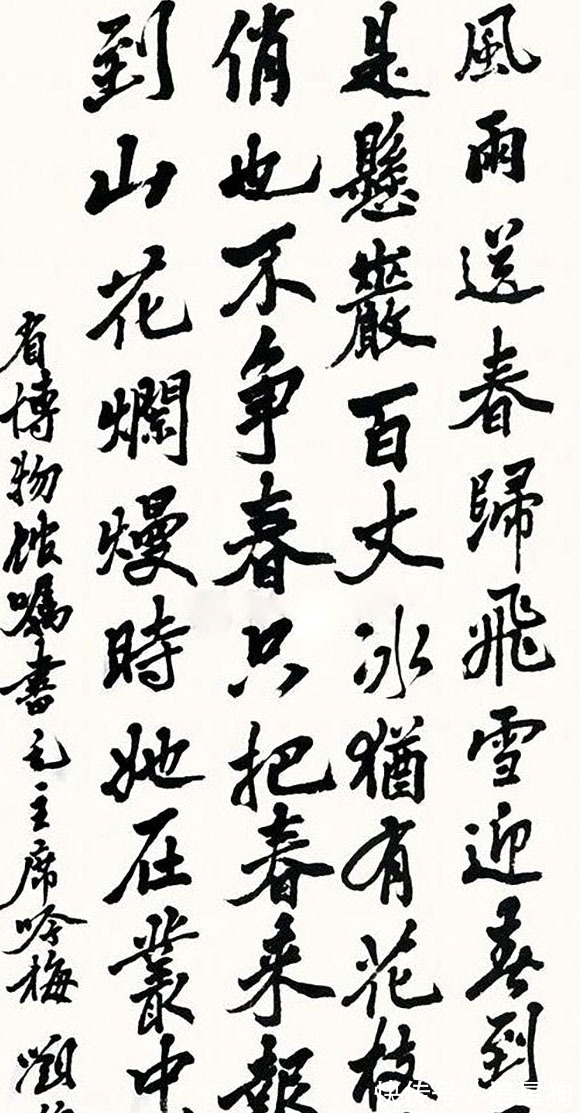 風雨送春歸飛雪迎春到
是懸巖百丈冰猶有花枝
俏也不争春只把春来報
到山花爛熳時她在叢中
省博物館嘱書毛主席咏梅 劉
快传号